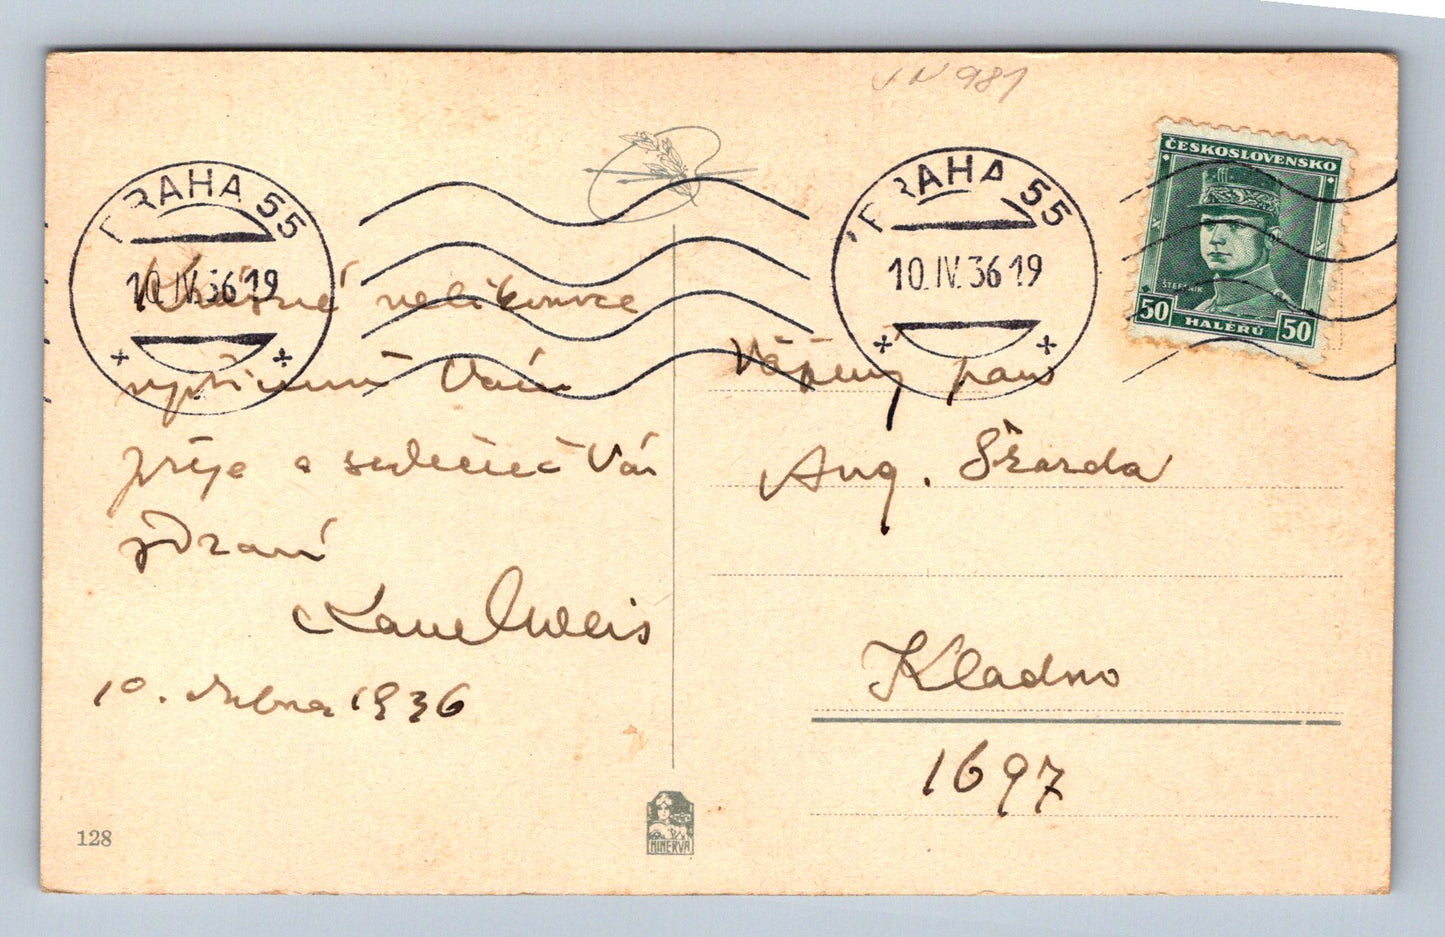 VN 981
PRAHA 55
10.IV.36 19
PRAHA 55
10.IV.36 19
ČESKOSLOVENSKO
ŠTEFÁNIK
50 HALÉŘŮ 50
Krásné velikonoce
upřímně Vám
přeje a srdečně Vás
zdraví
Karel Weis
10. dubna 1936
Vážený pan
Aug. Škarda
Kladno
1697
128
MINERVA